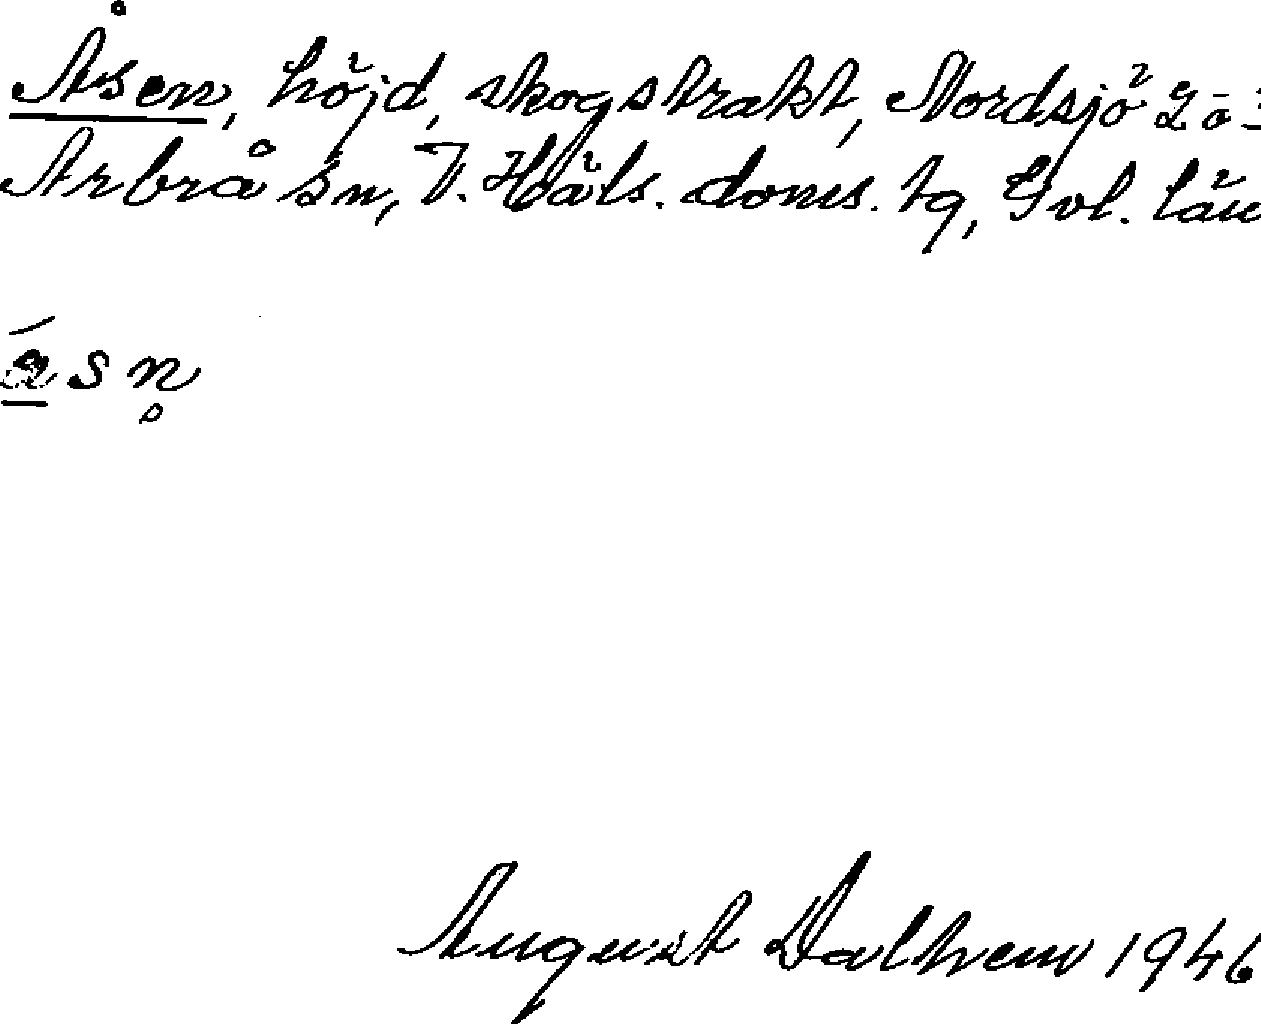 Åsen, höjd, skogstrakt, Nordsjö 2ō
Arbrå sn, V. Häls. doms. tg, Gvl. län
á̱ s n̥
August Dalhem 1946